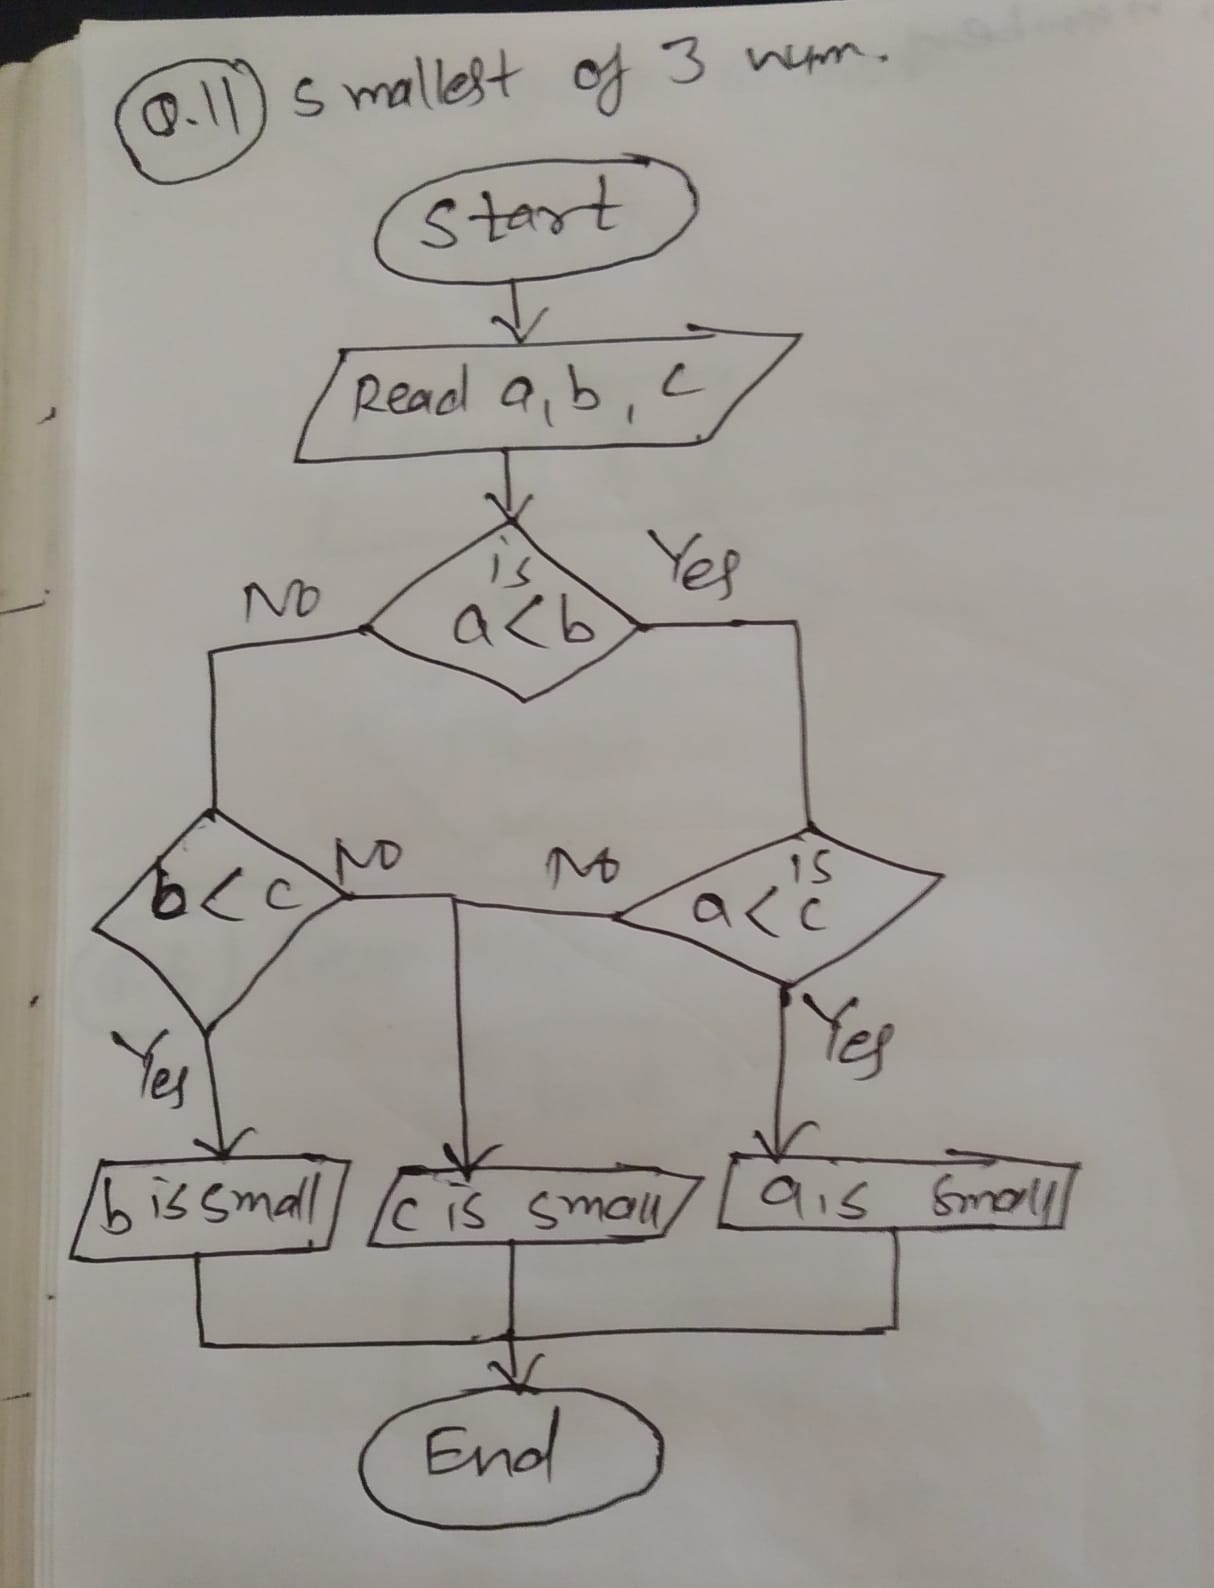 Q.11 Smallest of 3 num.
Start
Read a, b, c
is
a<b
No
Yes
b<c
No
No
is
a<c
Yes
Yes
b is small
c is small
a is small
End